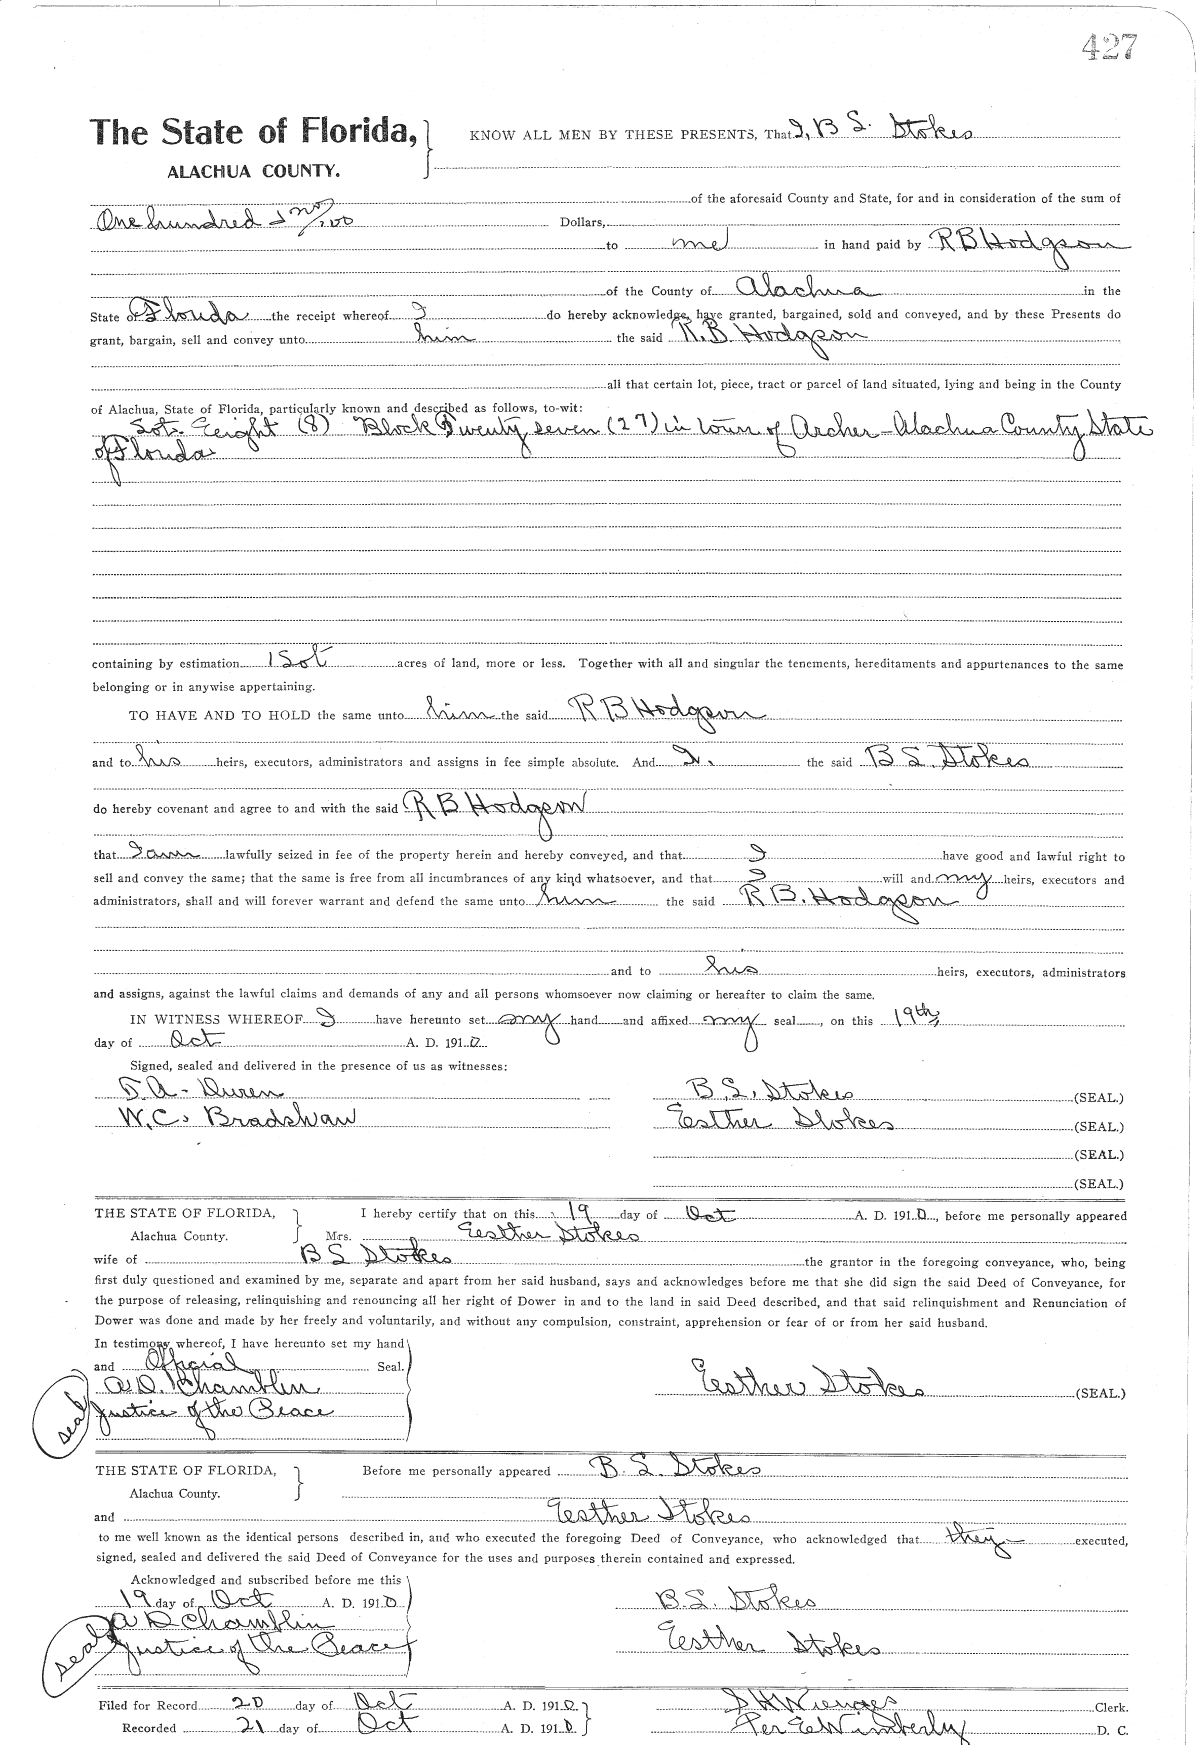 427
The State of Florida,
ALACHUA COUNTY.
KNOW ALL MEN BY THESE PRESENTS, That I, B S. Stokes
of the aforesaid County and State, for and in consideration of the sum of
One hundred & no/100 Dollars,
to me in hand paid by R B Hodgson
of the County of Alachua in the
State of Florida the receipt whereof I do hereby acknowledge, have granted, bargained, sold and conveyed, and by these Presents do
grant, bargain, sell and convey unto him the said R. B. Hodgson
all that certain lot, piece, tract or parcel of land situated, lying and being in the County
of Alachua, State of Florida, particularly known and described as follows, to-wit:
Lot Eeight (8) Block Twenty seven (27) in town of Archer - Alachua County State
of Florida
containing by estimation 1 Lot acres of land, more or less. Together with all and singular the tenements, hereditaments and appurtenances to the same
belonging or in anywise appertaining.
TO HAVE AND TO HOLD the same unto him the said R B Hodgson
and to his heirs, executors, administrators and assigns in fee simple absolute. And I, the said B S. Stokes
do hereby covenant and agree to and with the said R B Hodgson
that I am lawfully seized in fee of the property herein and hereby conveyed, and that I have good and lawful right to
sell and convey the same; that the same is free from all incumbrances of any kind whatsoever, and that I will and my heirs, executors and
administrators, shall and will forever warrant and defend the same unto him the said R B. Hodgson
and to his heirs, executors, administrators
and assigns, against the lawful claims and demands of any and all persons whomsoever now claiming or hereafter to claim the same.
IN WITNESS WHEREOF I have hereunto set my hand and affixed my seal, on this 19th,
day of Oct A. D. 1910
Signed, sealed and delivered in the presence of us as witnesses:
A - Duren B. S. Stokes (SEAL.)
W. C. Bradshaw Eesther Stokes (SEAL.)
(SEAL.)
(SEAL.)
THE STATE OF FLORIDA, I hereby certify that on this 19 day of Oct A. D. 1910, before me personally appeared
Alachua County. Mrs. Eesther Stokes
wife of B S Stokes the grantor in the foregoing conveyance, who, being
first duly questioned and examined by me, separate and apart from her said husband, says and acknowledges before me that she did sign the said Deed of Conveyance, for
the purpose of releasing, relinquishing and renouncing all her right of Dower in and to the land in said Deed described, and that said relinquishment and Renunciation of
Dower was done and made by her freely and voluntarily, and without any compulsion, constraint, apprehension or fear of or from her said husband.
In testimony whereof, I have hereunto set my hand
and Official Seal.
A. D. Chamblin Eesther Stokes (SEAL.)
seal Justice of the Peace
THE STATE OF FLORIDA, Before me personally appeared B. S. Stokes
Alachua County.
and Eesther Stokes
to me well known as the identical persons described in, and who executed the foregoing Deed of Conveyance, who acknowledged that they executed,
signed, sealed and delivered the said Deed of Conveyance for the uses and purposes therein contained and expressed.
Acknowledged and subscribed before me this
19 day of Oct A. D. 1910 B. S. Stokes
A D Chamblin
seal Justice of the Peace Eesther Stokes
Filed for Record 20 day of Oct A. D. 1910 S H Wienges Clerk.
Recorded 21 day of Oct A. D. 1910 Per E Wimberly D. C.